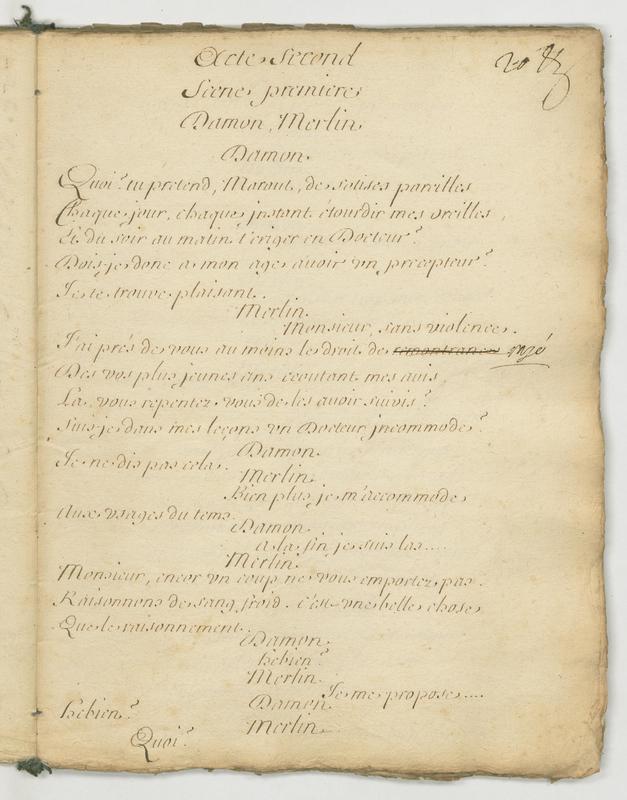 Acte Second
Scene premiere
Damon, Merlin
Damon.
Quoi? tu pretend, Maraut, de sotises pareilles
Chaque jour, chaque jnstant étourdir mes oreilles,
Et du soir au matin t'eriger en Docteur?
Dois-je donc a mon age avoir un precepteur?
Je te trouve plaisant.
Merlin.
Monsieur, sans violence.
J'ai prés de vous au moins le droit de remontrance
Des vos plus jeunes ans ecoutant mes avis,
La, vous repentez vous de les avoir suivis?
Suis-je dans mes leçons un Docteur jncommode?
Damon.
Je ne dis pas cela.
Merlin.
Bien plus je m'accommode
Aux usages du tems.
Damon.
a la fin je suis las....
Merlin.
Monsieur, encor un coup ne vous emportez pas.
Raisonnons de sang froid. c'est une belle chose
Que le raisonnement.
Damon.
hebien?
Merlin.
Je me propose....
Damon.
hebien?
Merlin.
Quoi?